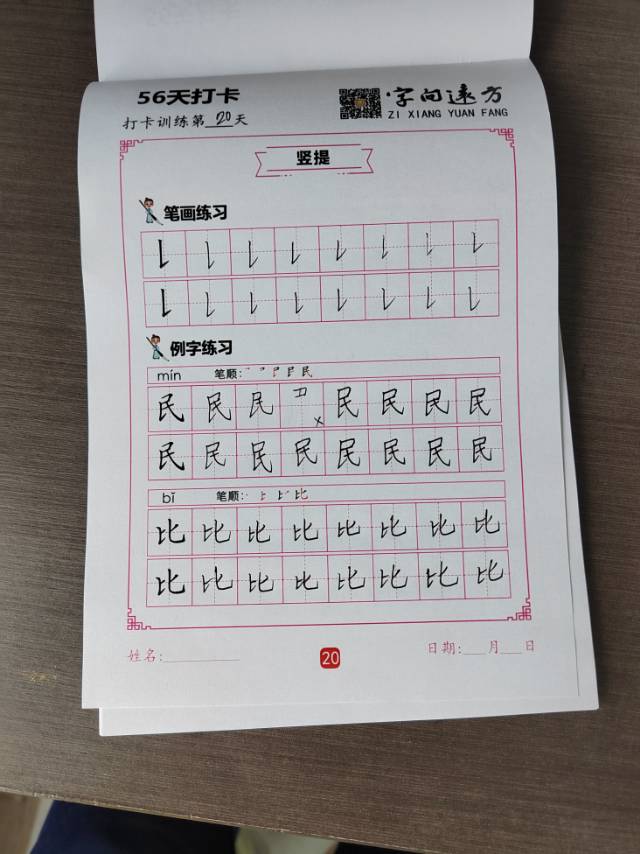 56天打卡
字向远方
ZI XIANG YUAN FANG
打卡训练第 20 天
竖提
笔画练习
例字练习
mín 笔顺:
民 民 民 民 民 民 民
民 民 民 民 民 民 民 民
bǐ 笔顺:
比 比 比 比 比 比 比 比
比 比 比 比 比 比 比 比
姓名:
20
日期: 月 日